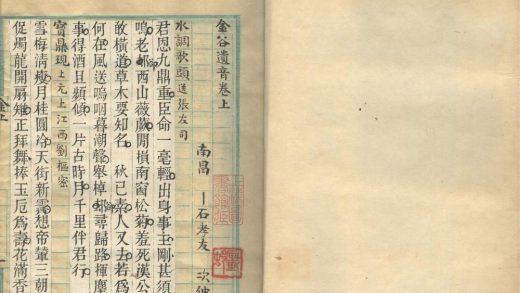 金谷遺音卷上
南昌 石孝友 次仲
水調歌頭 送張左司
君恩九鼎重臣命一毫輕出身事主剛甚須
嗚老郍西山薇蕨閒損南窗松菊羞死漢公
敢橫道草木要知名 秋已素人又去若爲
何在風送嗚咽暮潮聲舉棹郍尋歸路揮麈
事得酒且頻傾一片古時月千里伴君行
寶鼎現 上元上江西劉樞密
雪梅清瘦月桂圓天街新霽想帝輦三朝
促燭龍開扇雉正拜舞捧玉卮爲壽花滿香